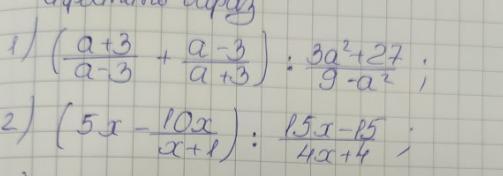 1) (a+3/a-3 + a-3/a+3) : 3a²+27/9-a² ;
2) (5x - 10x/x+1) : 15x-15/4x+4 ;